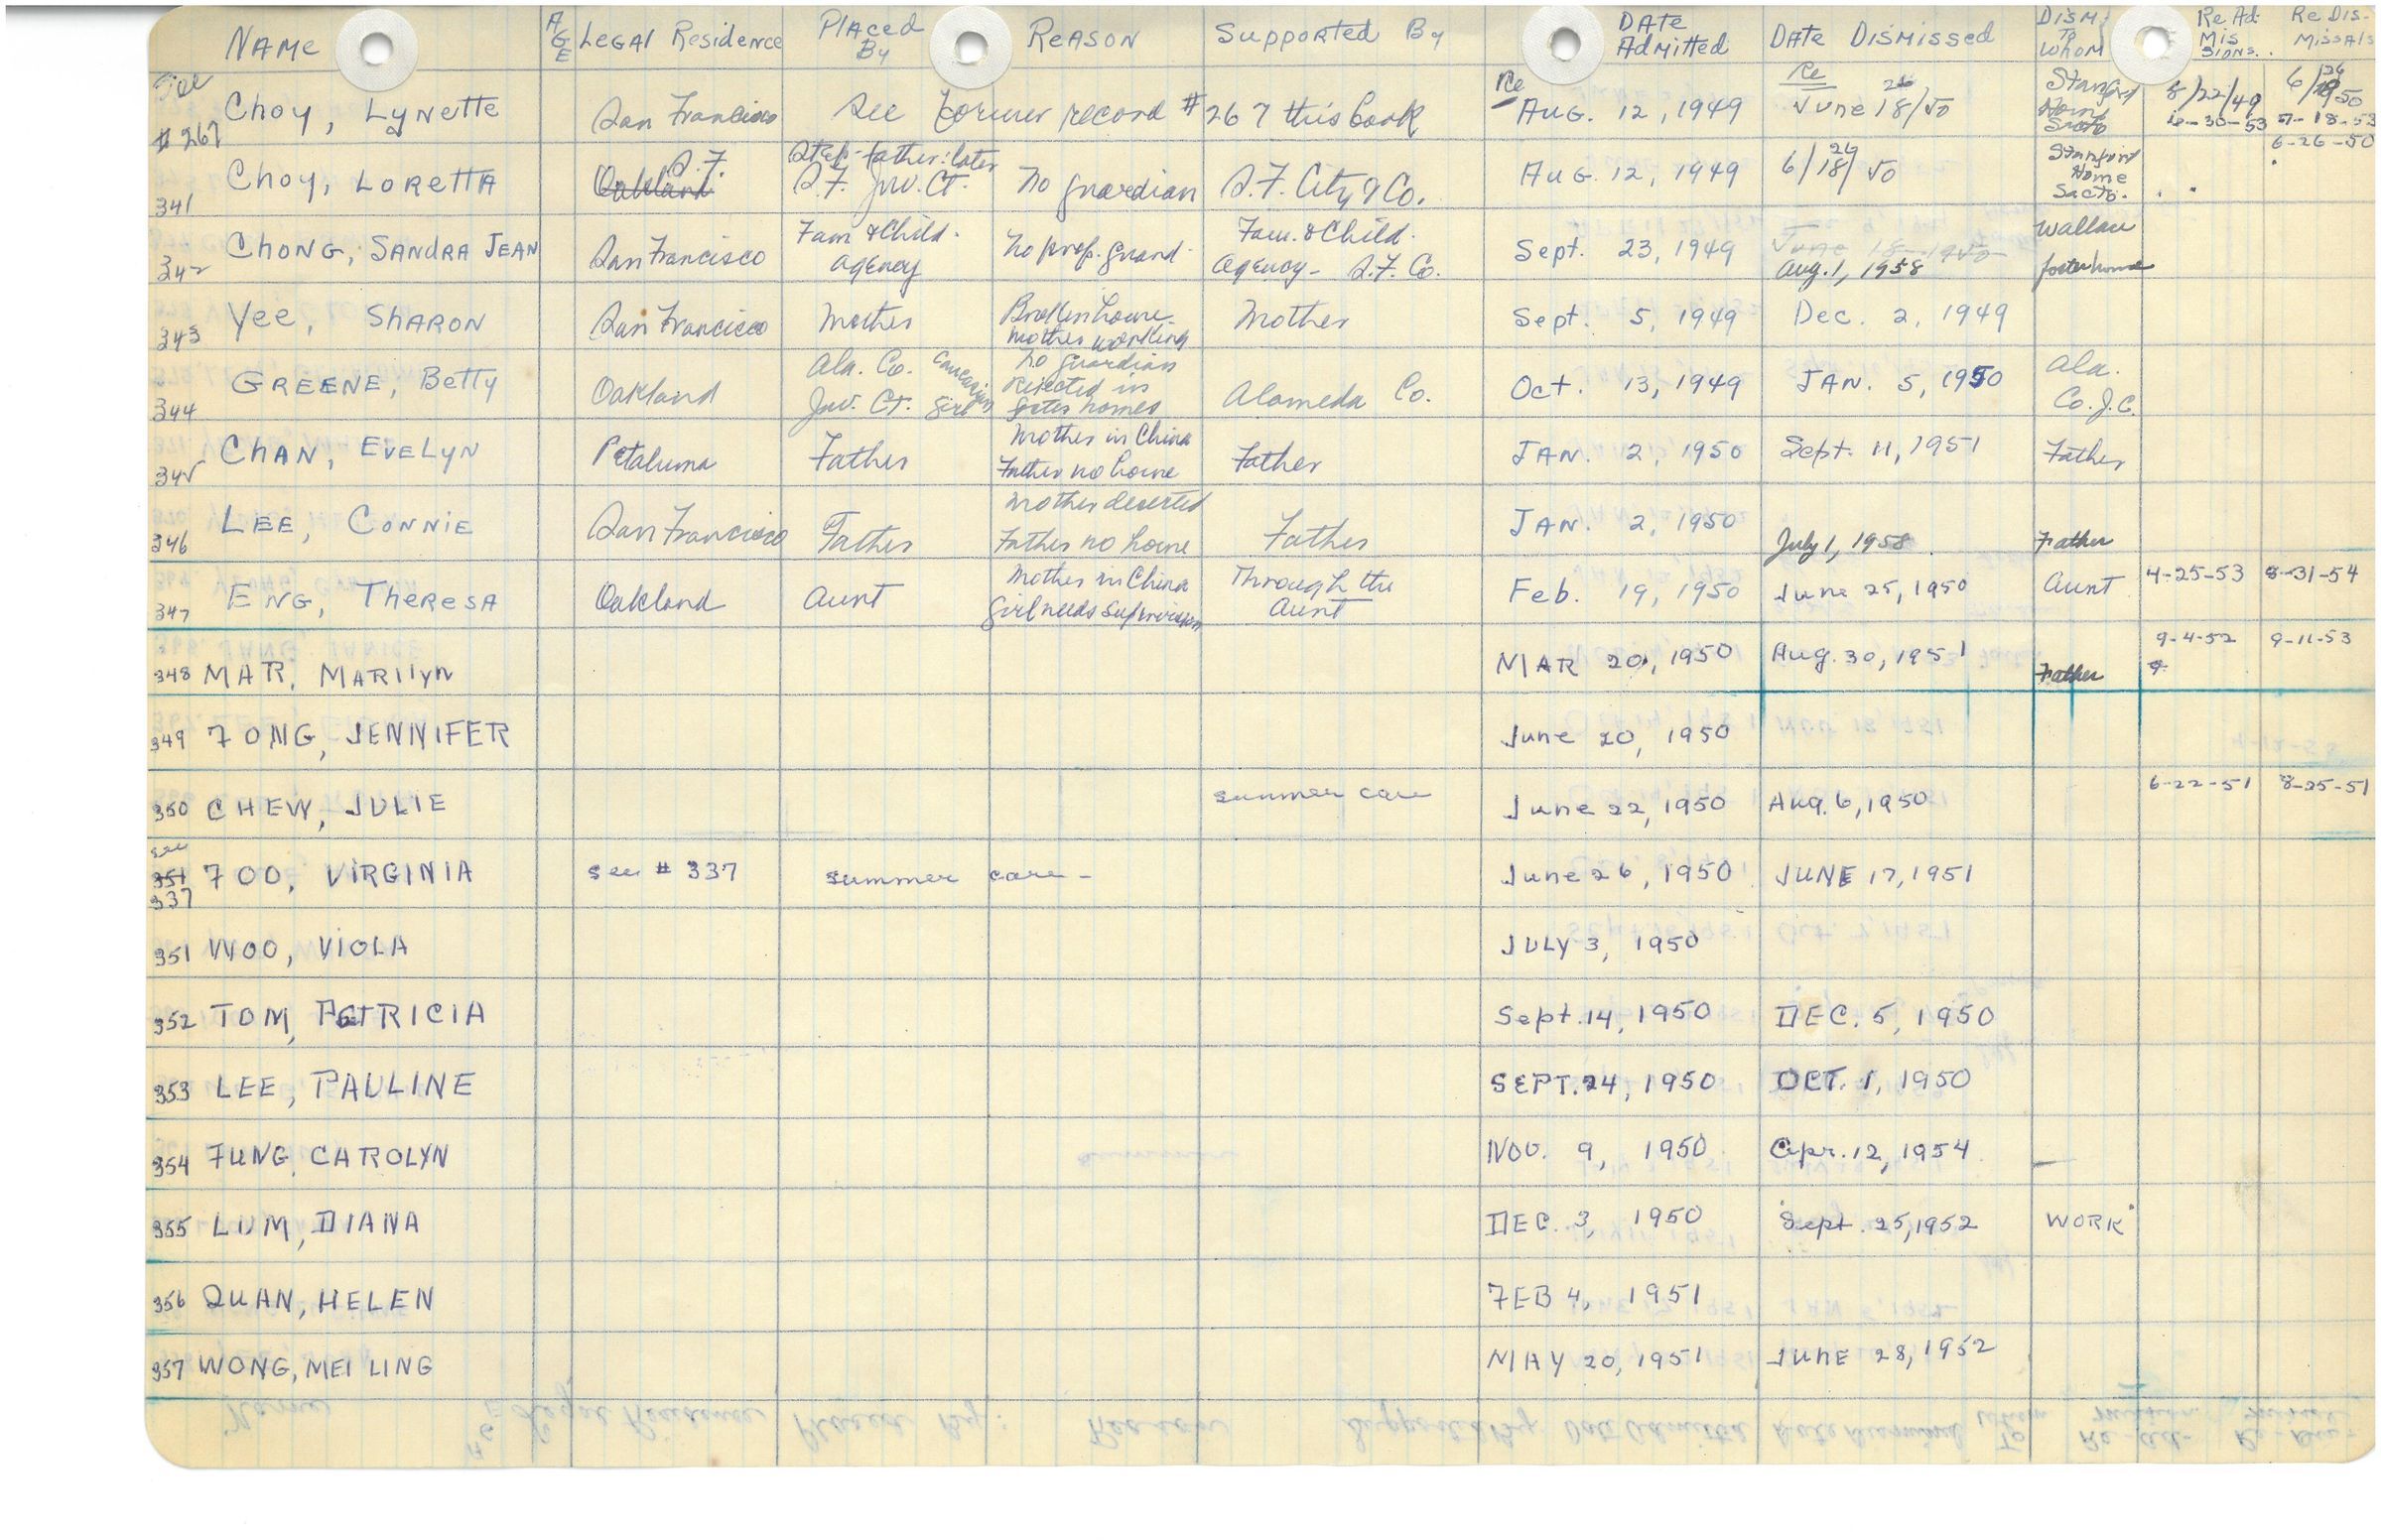 NAME AGE Legal Residence Placed By Reason Supported By Date Admitted Date Dismissed Dism. To Whom Re Ad Mis sions. Re Dis- Missals
See #267 Choy, Lynette San Francisco See former record #267 this book Re Aug. 12, 1949 Re June 18/50 26 Stanford Home Sacto 8/22/49 6/18/50 26
6-30-53 7-18-53
341 Choy, Loretta Oakland S.F. Step-father: later S.F. Juv. Ct. No guardian S.F. City & Co. Aug. 12, 1949 6/18/50 26 Stanford Home Sacto. 6-26-50
342 Chong, Sandra Jean San Francisco Fam & Child. Agency No prop. guard. Fam. & Child. Agency - S.F. Co. Sept. 23, 1949 June 18-1950 Aug. 1, 1958 Wallace foster home
343 Yee, Sharon San Francisco Mother Broken home Mother working Mother Sept. 5, 1949 Dec. 2, 1949
344 Greene, Betty Oakland Ala. Co. Juv. Ct. Caucasian girl No guardian Rejected in foster homes Alameda Co. Oct. 13, 1949 Jan. 5, 1950 Ala. Co. J.C.
345 Chan, Evelyn Petaluma Father Mother in China Father no home Father Jan. 2, 1950 Sept. 11, 1951 Father
346 Lee, Connie San Francisco Father Mother deserted Father no home Father Jan. 2, 1950 July 1, 1958 Father
347 Eng, Theresa Oakland Aunt Mother in China Girl needs supervision Through the Aunt Feb. 19, 1950 June 25, 1950 Aunt 4-25-53 8-31-54
348 Mar, Marilyn Mar 20, 1950 Aug. 30, 1951 Father 9-4-52 9-11-53
349 Fong, Jennifer June 20, 1950
350 Chew, Julie summer care June 22, 1950 Aug. 6, 1950 6-22-51 8-25-51
see 351 337 Foo, Virginia see #337 summer care - June 26, 1950 June 17, 1951
351 Woo, Viola July 3, 1950
352 Tom, Patricia Sept. 14, 1950 Dec. 5, 1950
353 Lee, Pauline Sept. 24, 1950 Oct. 1, 1950
354 Fung, Carolyn Nov. 9, 1950 Apr. 12, 1954 —
355 Lum, Diana Dec. 3, 1950 Sept. 25, 1952 Work
356 Quan, Helen Feb 4, 1951
357 Wong, Mei Ling May 20, 1951 June 28, 1952